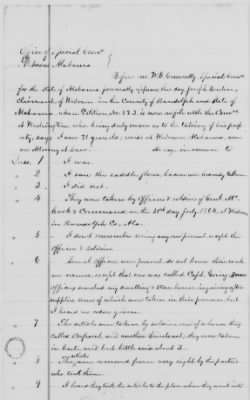 Office of Special Com.
Alabama
Before me W. G. Connelly Special Com.
for the State of Alabama personally appears this day Joseph Benton,
Claimant, of Wedowee in the County of Randolph and State of
Alabama, whose Petition No. 783 is now on file with the Com.
at Washington, who being duly sworn as to the taking of his prop-
erty, says I am 71 years old, reside at Wedowee Alabama, am
an Attorney at Law. At my in answer to
Ques. 1 I was.
" 2 I saw the saddle, flour, bacon and brandy taken
" 3 I did not.
" 4 They were taken by Officers & soldiers of Genl. Mc
Cook's Command on the 31st day July 1864, at Wedowee
in Randolph Co., Ala.
" 5 I don't remember seeing any one present except the
Officers & Soldiers.
" 6 Several officers were present, do not know their rank
nor names, except that one was called Capt.
officers searched my dwelling & store house inquiring after
supplies some of which was taken in their presence, but
I heard no orders given.
" 7 The articles were taken by soldiers, one of whom they
called Corporal, and another Sergeant, they were taken
in haste and but little said about it.
" 8 The articles were removed from my sight by the parties
who took them.
" 9 I heard they took the articles to the place where they went into